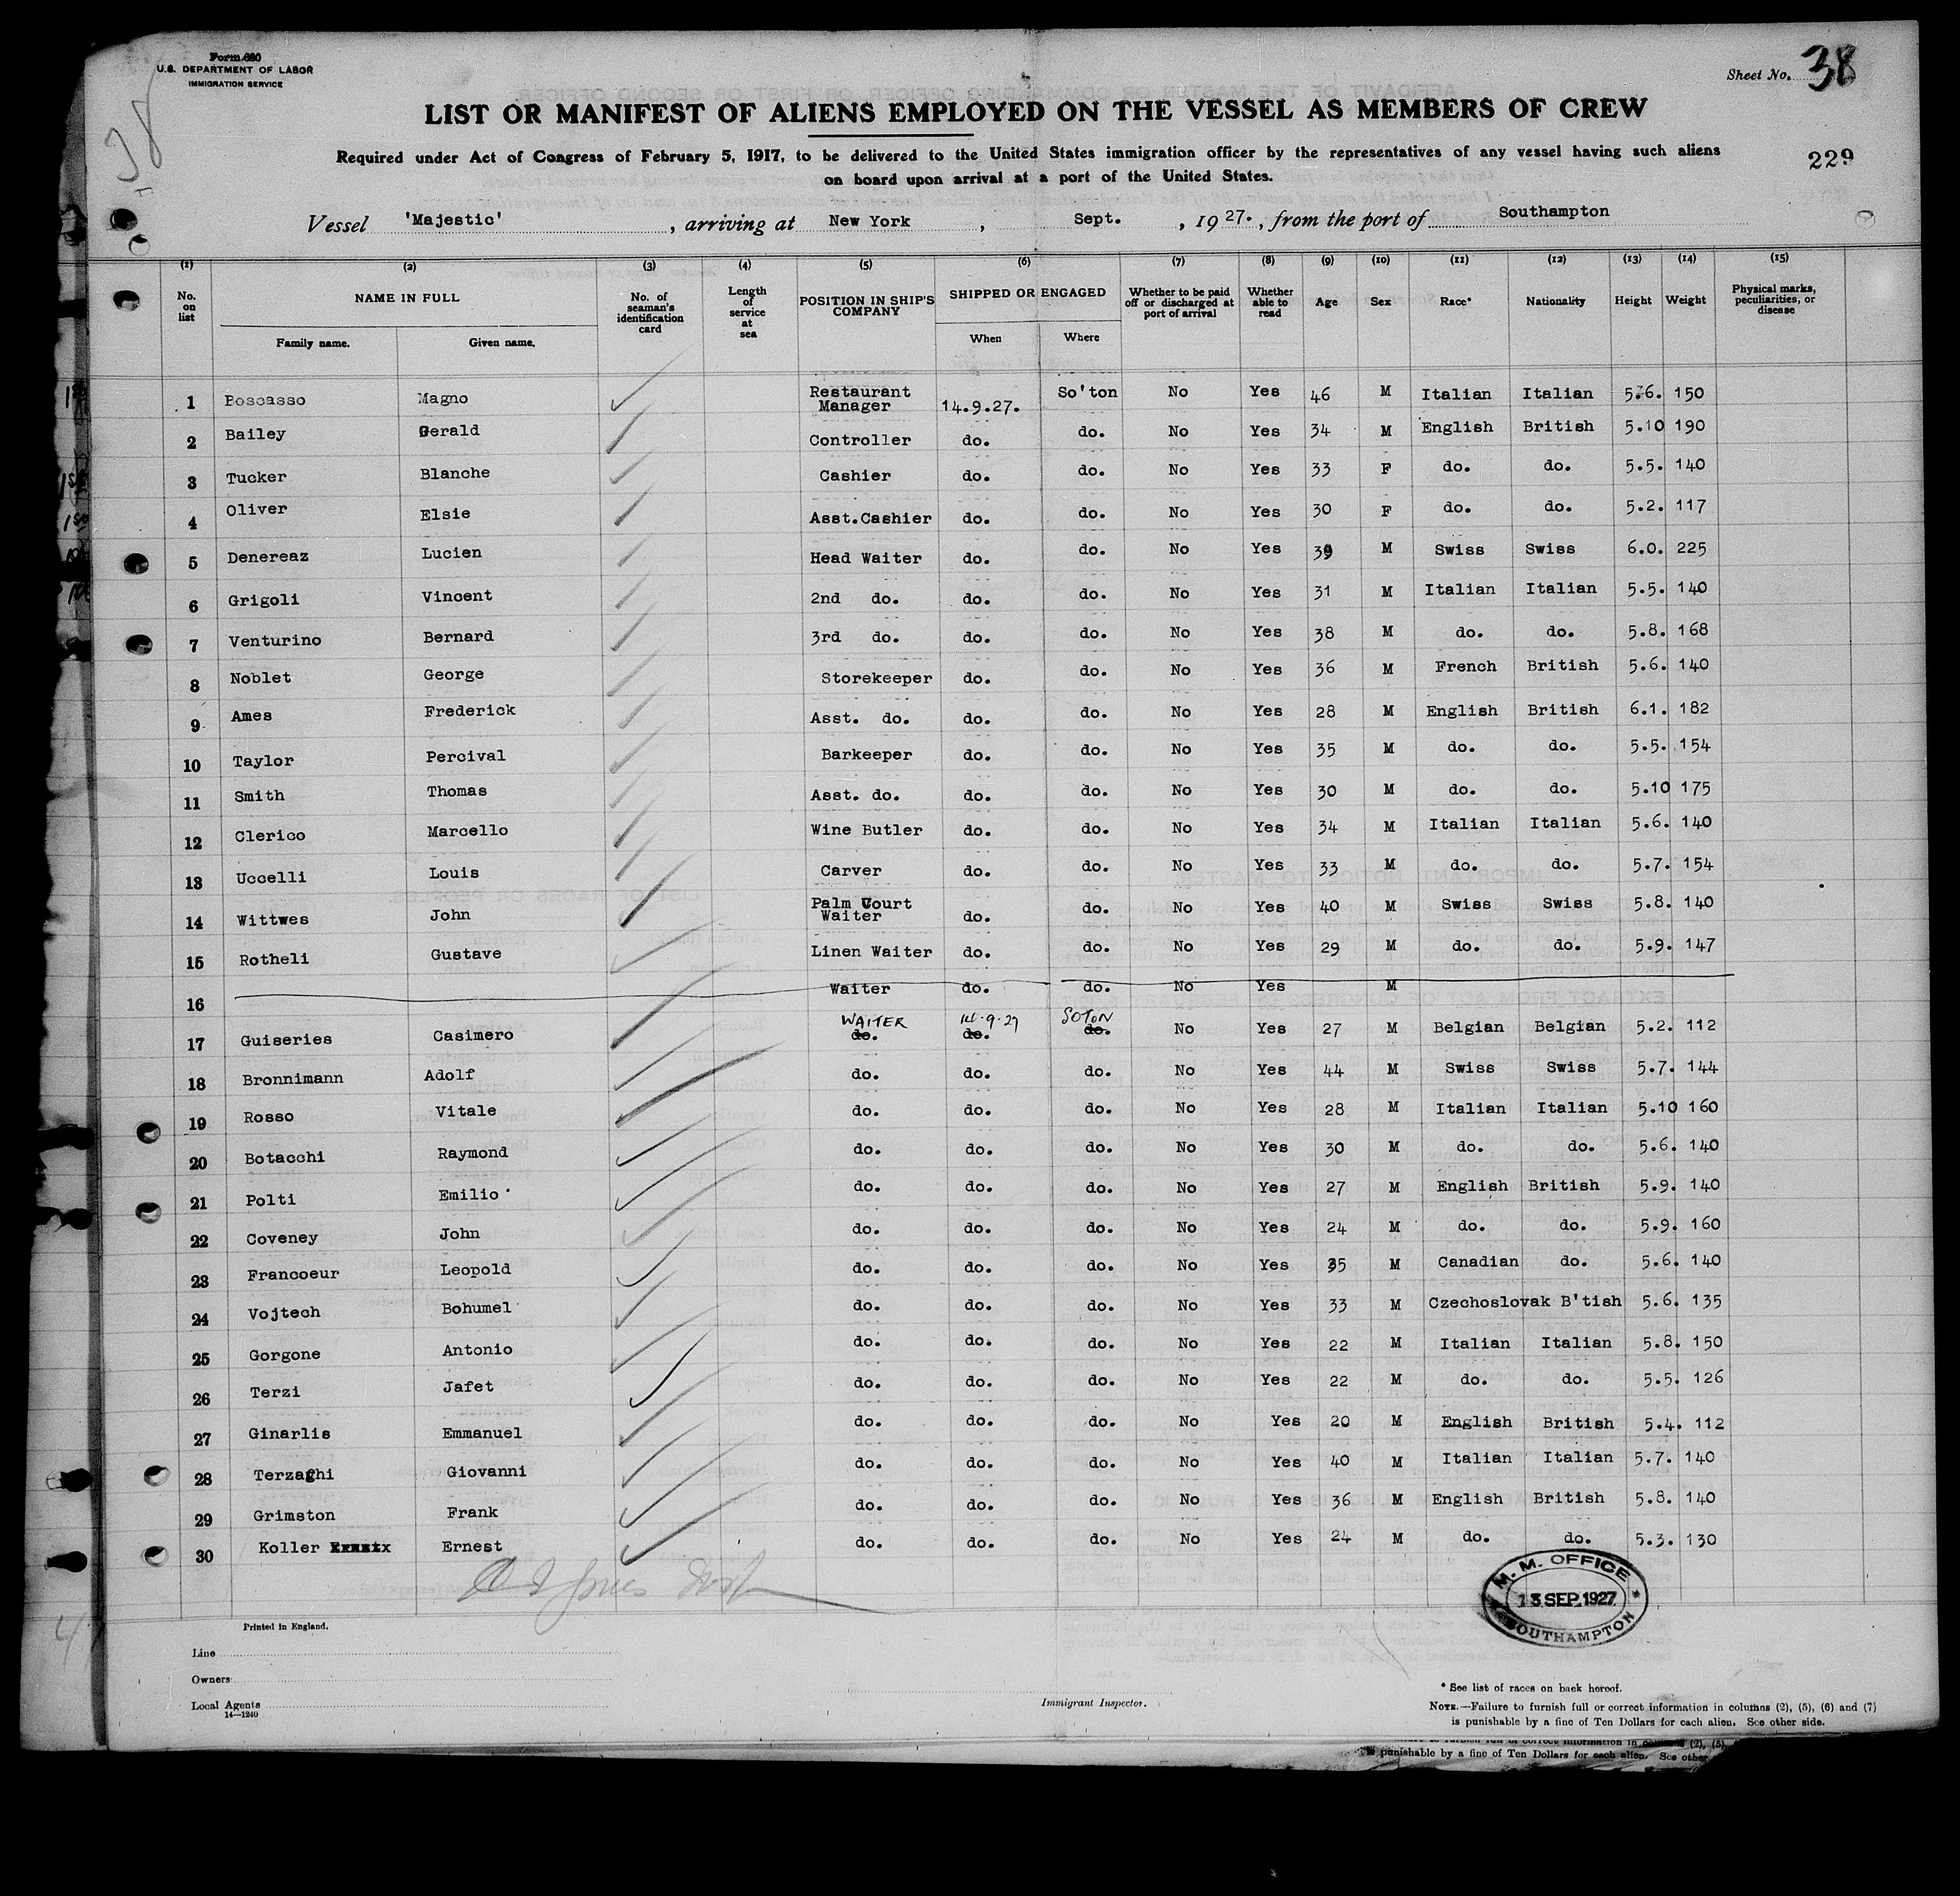 Form 680
U.S. DEPARTMENT OF LABOR
IMMIGRATION SERVICE
Sheet No. 38
LIST OR MANIFEST OF ALIENS EMPLOYED ON THE VESSEL AS MEMBERS OF CREW
Required under Act of Congress of February 5, 1917, to be delivered to the United States immigration officer by the representatives of any vessel having such aliens
on board upon arrival at a port of the United States.
229
Vessel 'Majestic' , arriving at New York , Sept. , 19 27. , from the port of Southampton
(1) (2) (3) (4) (5) (6) (7) (8) (9) (10) (11) (12) (13) (14) (15)
No. on list NAME IN FULL Family name. Given name. No. of seaman's identification card Length of service at sea POSITION IN SHIP'S COMPANY SHIPPED OR ENGAGED When Where Whether to be paid off or discharged at port of arrival Whether able to read Age Sex Race* Nationality Height Weight Physical marks, peculiarities, or disease
1 Boscasso Magno Restaurant Manager 14.9.27. So'ton No Yes 46 M Italian Italian 5.6. 150
2 Bailey Gerald Controller do. do. No Yes 34 M English British 5.10 190
3 Tucker Blanche Cashier do. do. No Yes 33 F do. do. 5.5. 140
4 Oliver Elsie Asst.Cashier do. do. No Yes 30 F do. do. 5.2. 117
5 Denereaz Lucien Head Waiter do. do. No Yes 39 M Swiss Swiss 6.0. 225
6 Grigoli Vincent 2nd do. do. do. No Yes 31 M Italian Italian 5.5. 140
7 Venturino Bernard 3rd do. do. do. No Yes 38 M do. do. 5.8. 168
8 Noblet George Storekeeper do. do. No Yes 36 M French British 5.6. 140
9 Ames Frederick Asst. do. do. do. No Yes 28 M English British 6.1. 182
10 Taylor Percival Barkeeper do. do. No Yes 35 M do. do. 5.5. 154
11 Smith Thomas Asst. do. do. do. No Yes 30 M do. do. 5.10 175
12 Clerico Marcello Wine Butler do. do. No Yes 34 M Italian Italian 5.6. 140
13 Uccelli Louis Carver do. do. No Yes 33 M do. do. 5.7. 154
14 Wittwes John Palm Court Waiter do. do. No Yes 40 M Swiss Swiss 5.8. 140
15 Rotheli Gustave Linen Waiter do. do. No Yes 29 M do. do. 5.9. 147
16 Waiter do. do. No Yes M
17 Guiseries Casimero WAITER do. 14.9.27 do. SOTON do. No Yes 27 M Belgian Belgian 5.2. 112
18 Bronnimann Adolf do. do. do. No Yes 44 M Swiss Swiss 5.7. 144
19 Rosso Vitale do. do. do. No Yes 28 M Italian Italian 5.10 160
20 Botacchi Raymond do. do. do. No Yes 30 M do. do. 5.6. 140
21 Polti Emilio do. do. do. No Yes 27 M English British 5.9. 140
22 Coveney John do. do. do. No Yes 24 M do. do. 5.9. 160
23 Francoeur Leopold do. do. do. No Yes 35 M Canadian do. 5.6. 140
24 Vojtech Bohumel do. do. do. No Yes 33 M Czechoslovak B'tish 5.6. 135
25 Gorgone Antonio do. do. do. No Yes 22 M Italian Italian 5.8. 150
26 Terzi Jafet do. do. do. No Yes 22 M do. do. 5.5. 126
27 Ginarlis Emmanuel do. do. do. No Yes 20 M English British 5.4. 112
28 Terzaghi Giovanni do. do. do. No Yes 40 M Italian Italian 5.7. 140
29 Grimston Frank do. do. do. No Yes 36 M English British 5.8. 140
30 Koller Ernest do. do. do. No Yes 24 M do. do. 5.3. 130
M. M. OFFICE
13 SEP. 1927
SOUTHAMPTON
Printed in England.
Line
Owners
Local Agents
14—1240
Immigrant Inspector.
* See list of races on back hereof.
NOTE.—Failure to furnish full or correct information in columns (2), (5), (6) and (7)
is punishable by a fine of Ten Dollars for each alien. See other side.
punishable by a fine of Ten Dollars for each alien. See other